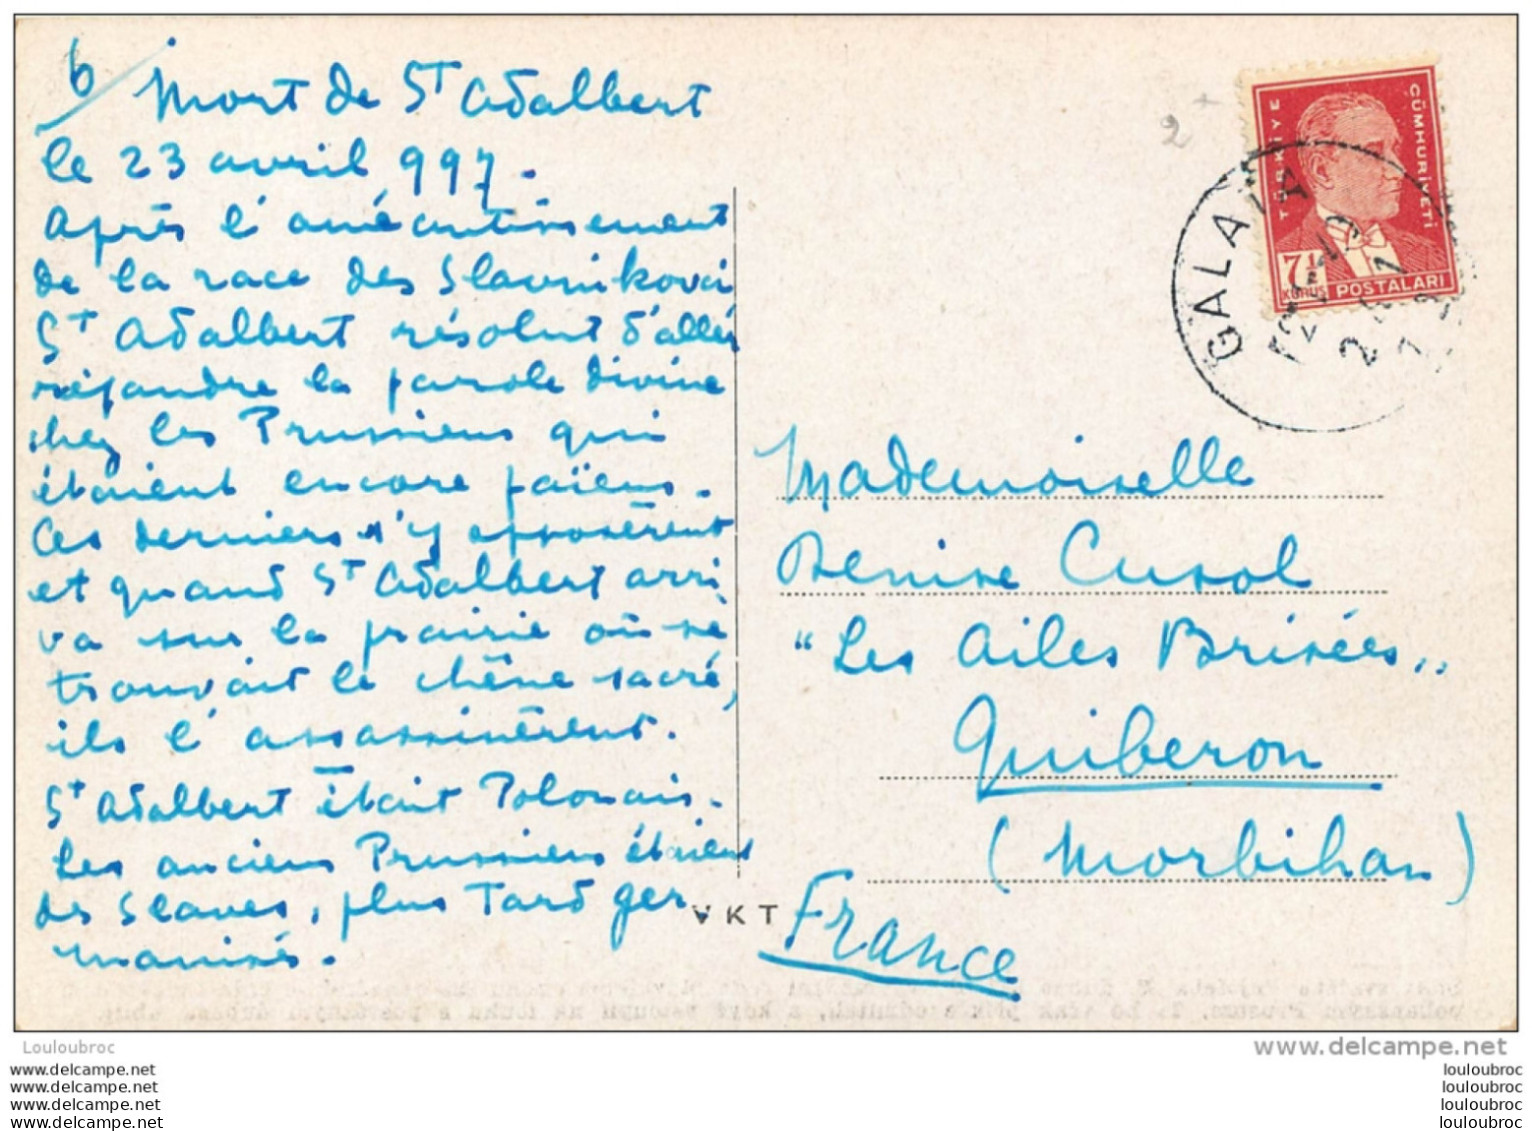 6/ Mort de St Adalbert
le 23 avril 997.
Après l'anéantissement
de la race des Slavnikovci
St Adalbert résolut d'aller
répandre la parole divine
chez les Prussiens qui
étaient encore païens.
Ces derniers s'y opposèrent
et quand St Adalbert arri
va sur la prairie où se
trouvait le chêne sacré,
ils l'assassinèrent.
St Adalbert était Polonais.
Les anciens Prussiens étaient
des Slaves, plus tard ger
manisés.
VKT
2+
TÜRKİYE
CÜMHURİYETİ
7½
KURUŞ POSTALARI
GALATA
Mademoiselle
Denise Cusol
"Les Ailes Brisées"
Quiberon
(Morbihan)
France
Louloubroc
www.delcampe.net
www.delcampe.net
www.delcampe.net
www.delcampe.net
www.delcampe.net
louloubroc
louloubroc
louloubroc
louloubroc